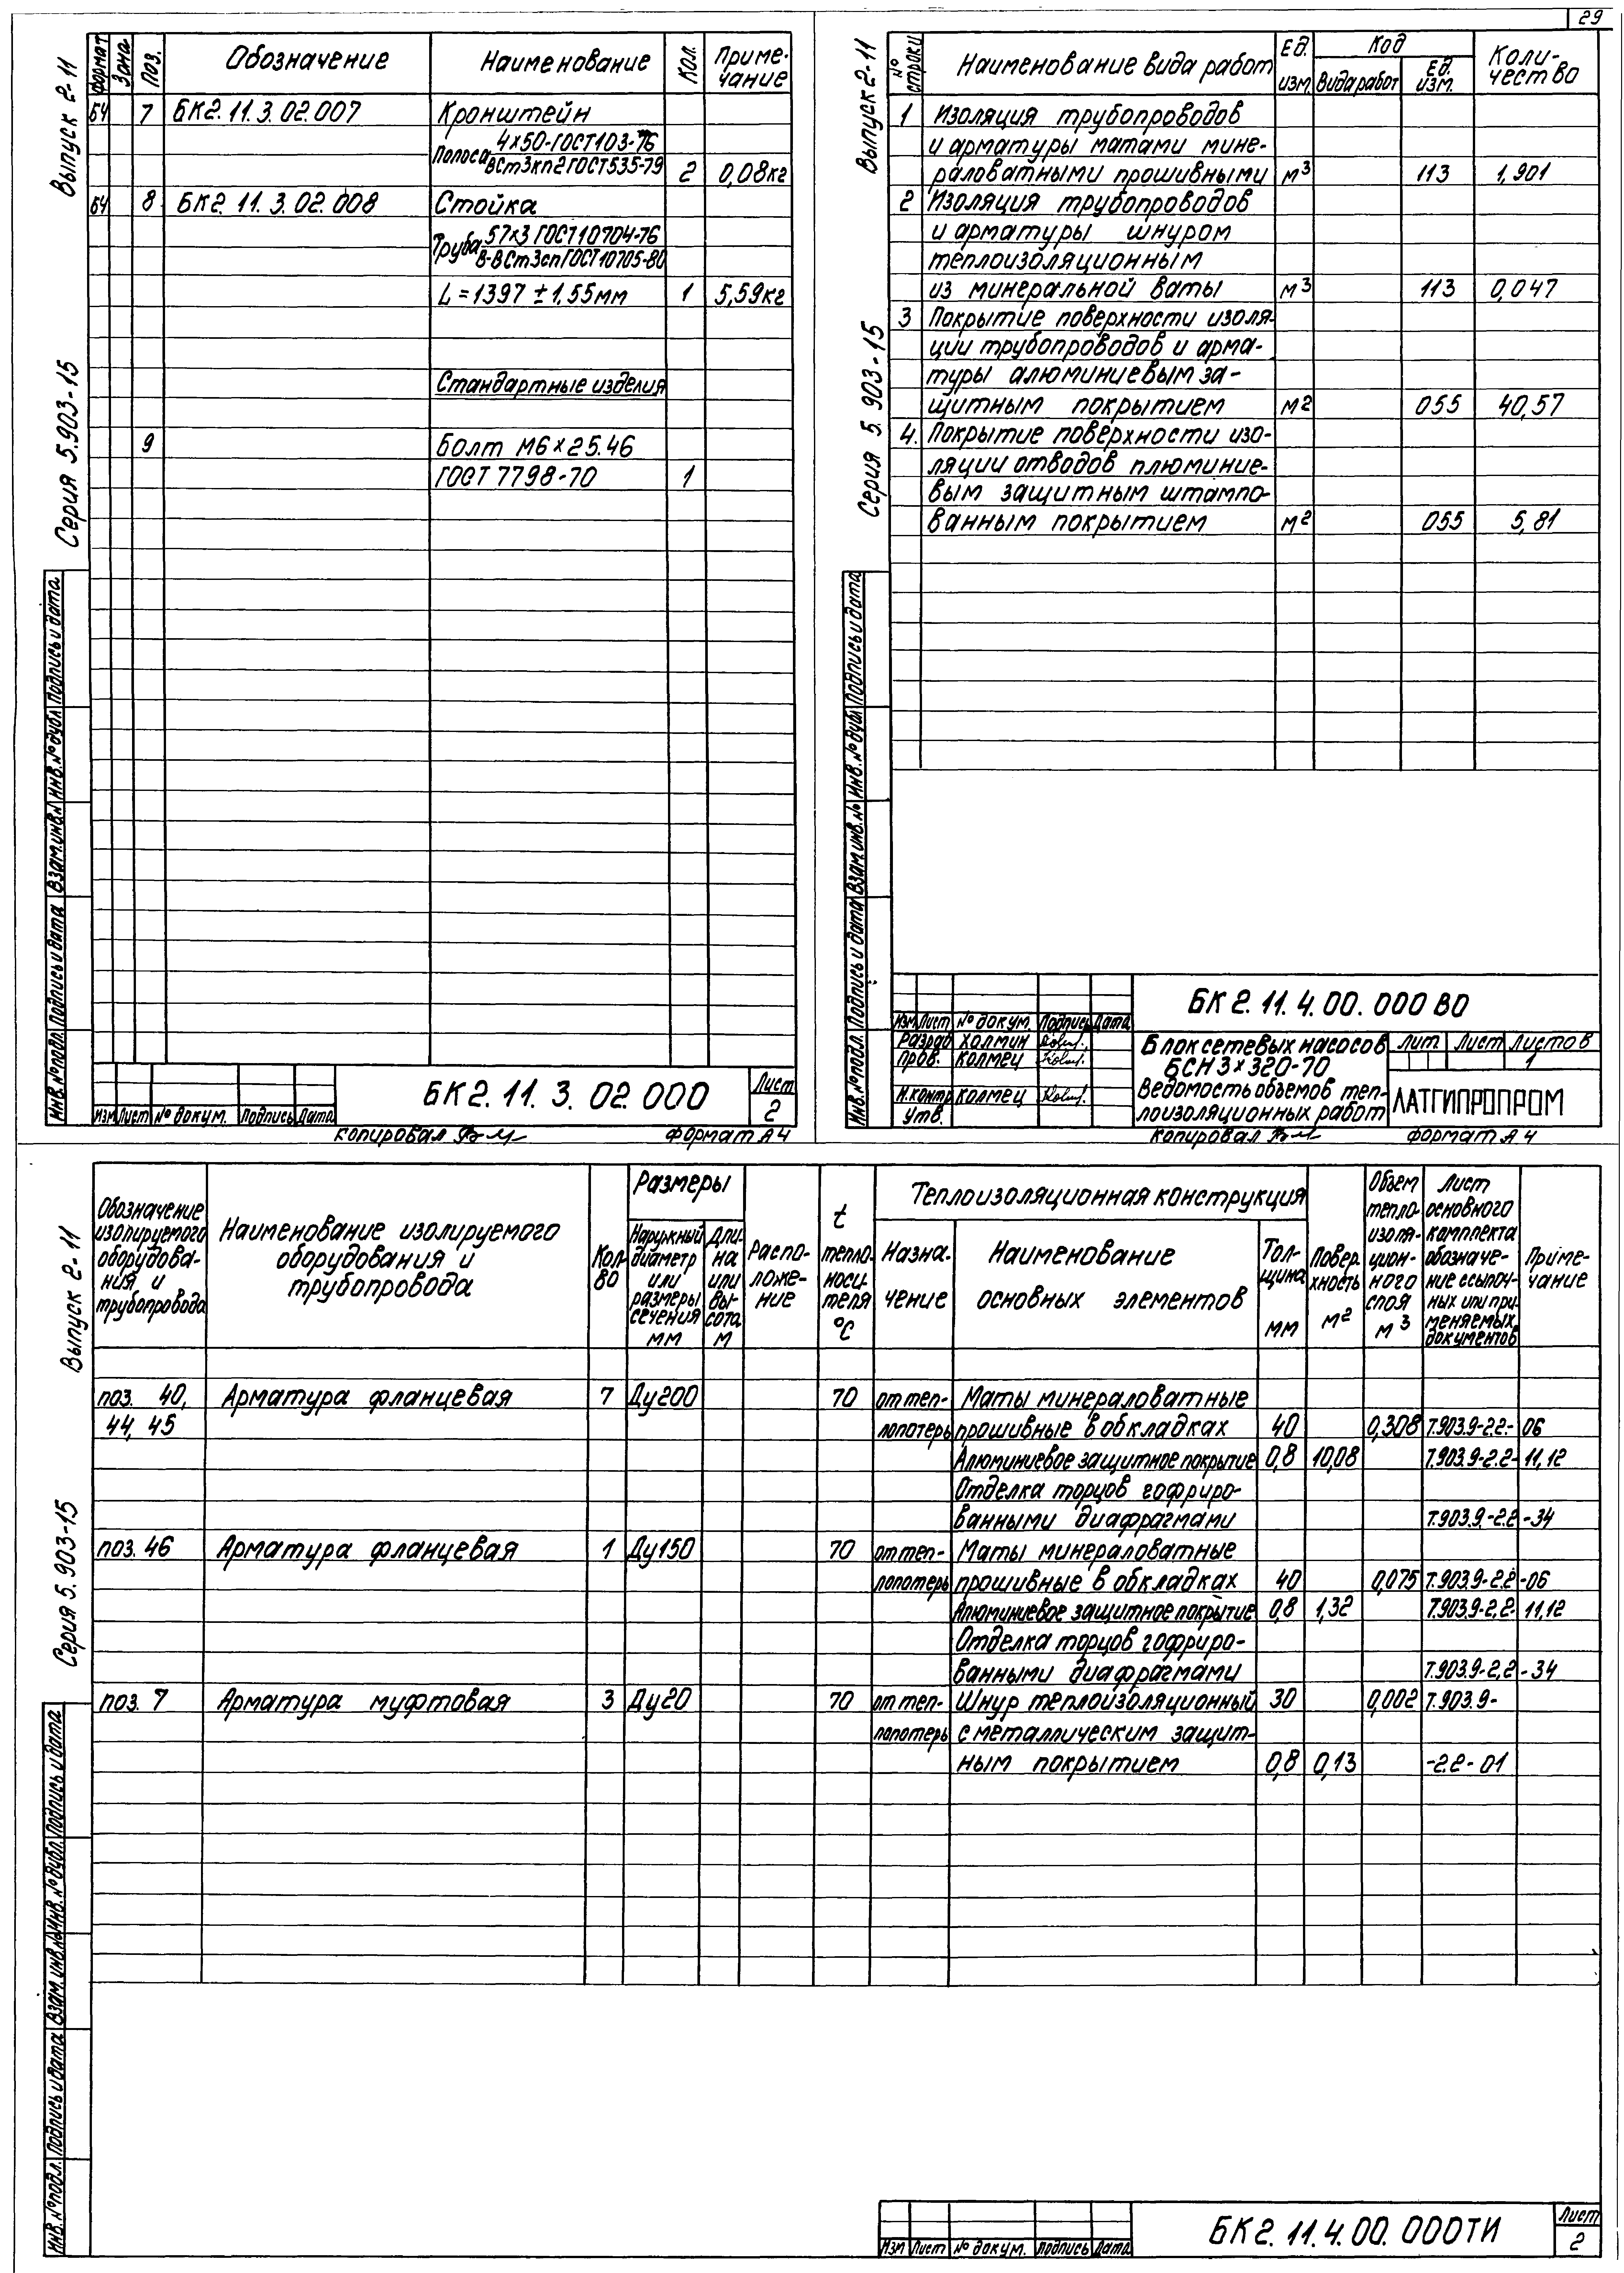 29
Выпуск 2-11
Серия 5.903-15
Формат Зона Поз. Обозначение Наименование Кол. Приме-
чание
БЧ 7 БК2.11.3.02.007 Кронштейн
Полоса 4×50-ГОСТ103-76
ВСт3кп2ГОСТ535-79 2 0,08кг
БЧ 8 БК2.11.3.02.008 Стойка
Труба 57×3 ГОСТ10704-76
В-ВСт3спГОСТ10705-80
L=1397 ±1.55мм 1 5,59кг
Стандартные изделия
9 Болт М6×25.46
ГОСТ 7798-70 1
Инв.№подл. Подпись и дата Взам.инв.№ Инв.№дубл. Подпись и дата
Изм Лист № докум. Подпись Дата
БК2.11.3.02.000
Лист
2
Копировал
Формат А4
Выпуск 2-11
Серия 5.903-15
№ строки Наименование вида работ Ед. изм. Код Коли-
чество
Вида работ Ед. изм.
1 Изоляция трубопроводов
и арматуры матами мине-
раловатными прошивными м³ 113 1,901
2 Изоляция трубопроводов
и арматуры шнуром
теплоизоляционным
из минеральной ваты м³ 113 0,047
3 Покрытие поверхности изоля-
ции трубопроводов и арма-
туры алюминиевым за-
щитным покрытием м² 055 40,57
4. Покрытие поверхности изо-
ляции отводов плюминие-
вым защитным штампо-
ванным покрытием м² 055 5,81
Инв.№подл. Подпись и дата Взам.инв.№ Инв.№дубл. Подпись и дата
БК2.11.4.00.000 ВО
Изм Лист № докум. Подпись Дата
Разраб Холмин
Пров. Колмец
Н.контр Колмец
Утв.
Блок сетевых насосов
БСН3×320-70
Ведомость объемов теп-
лоизоляционных работ
Лит. Лист Листов
1
ЛАТГИПРОПРОМ
Копировал
Формат А4
Выпуск 2-11
Серия 5.903-15
Обозначение
изолируемого
оборудова-
ния и
трубопровода
Наименование изолируемого
оборудования и
трубопровода
Кол-
во
Размеры
Наружный
диаметр
или
размеры
сечения
мм
Дли-
на
или
вы-
сота
м
Распо-
ложе-
ние
t
тепло-
носи-
теля
°С
Теплоизоляционная конструкция
Назна-
чение
Наименование
основных элементов
Тол-
щина
мм
Повер-
хность
м²
Объем
тепло-
изоля-
цион-
ного
слоя
м³
Лист
основного
комплекта
обозначе-
ние ссылоч-
ных или при-
меняемых
документов
Приме-
чание
поз. 40, Арматура фланцевая 7 Ду200 70 от теп- Маты минераловатные
44, 45 лопотерь прошивные в обкладках 40 0,308 Т.903.9-2.2- 06
Алюминиевое защитное покрытие 0,8 10,08 Т.903.9-2.2- 11,12
Отделка торцов гофриро-
ванными диафрагмами Т.903.9.-2.2 -34
поз. 46 Арматура фланцевая 1 Ду150 70 от теп- Маты минераловатные
лопотерь прошивные в обкладках 40 0,075 Т.903.9-2.2 -06
Алюминиевое защитное покрытие 0,8 1,32 Т.903.9-2.2- 11,12
Отделка торцов гофриро-
ванными диафрагмами Т.903.9-2.2 -34
поз. 7 Арматура муфтовая 3 Ду20 70 от теп- Шнур теплоизоляционный 30 0,002 Т.903.9-
лопотерь с металлическим защит-
ным покрытием 0,8 0,13 -2.2-01
Инв.№подл. Подпись и дата Взам.инв.№ Инв.№дубл. Подпись и дата
Изм Лист № докум. Подпись Дата
БК2.11.4.00.000ТИ
Лист
2